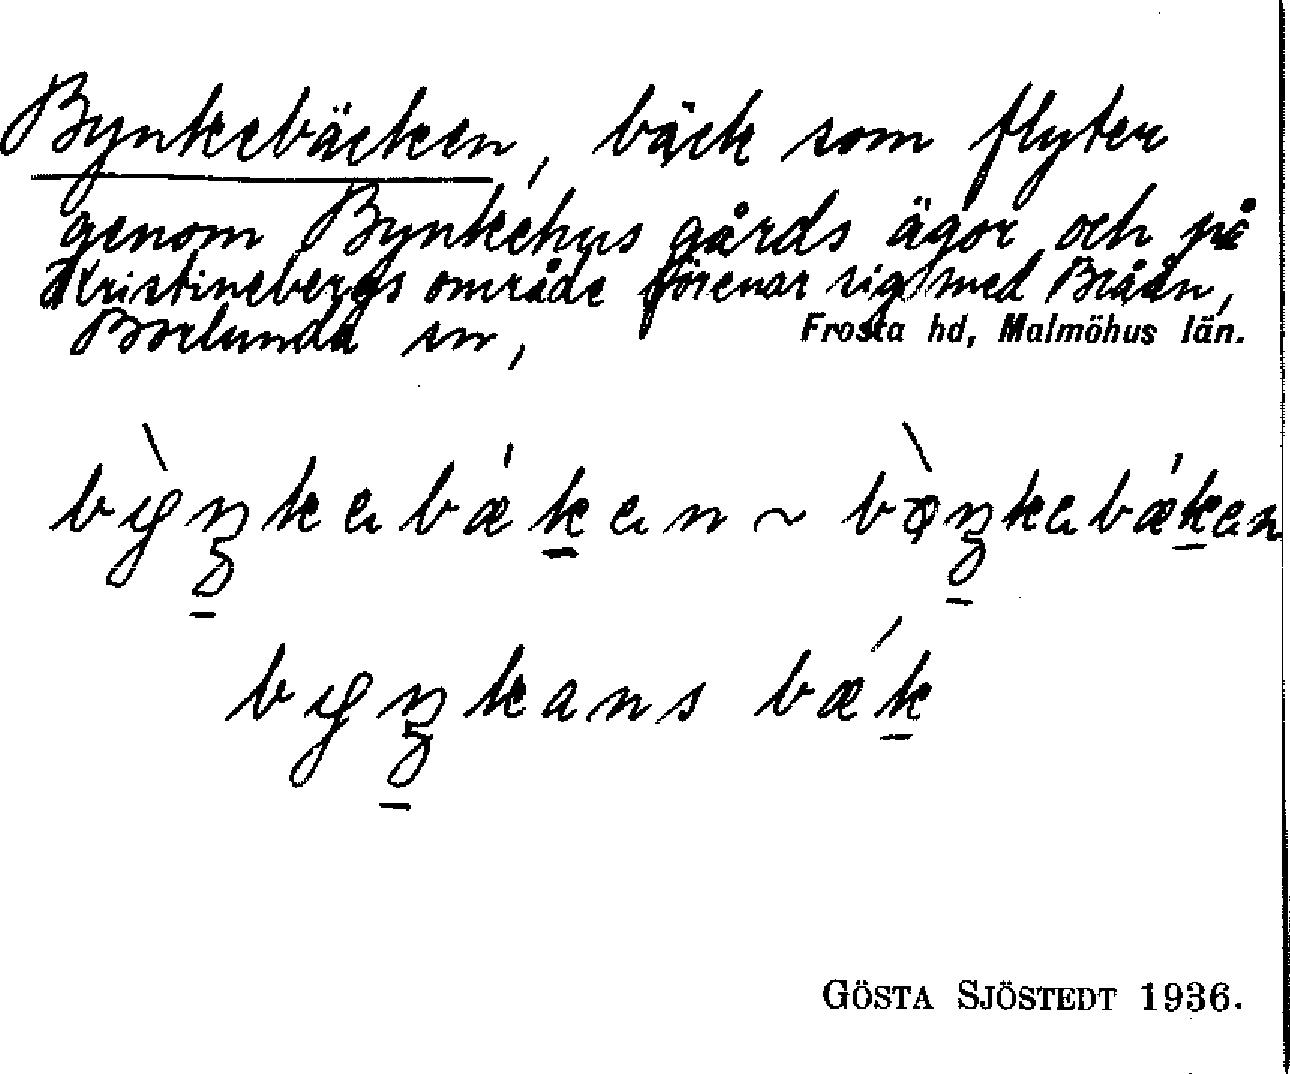 Bynkebäcken, bäck som flyter
genom Bynkehus gårds ägor och på
Kristinebergs område förenar sig med Bråån,
Borlunda sn, Frosta hd, Malmöhus län.
bỳŋkebǽken ~ bø̀ŋkebǽken
byŋkans bǽk
GÖSTA SJÖSTEDT 1936.